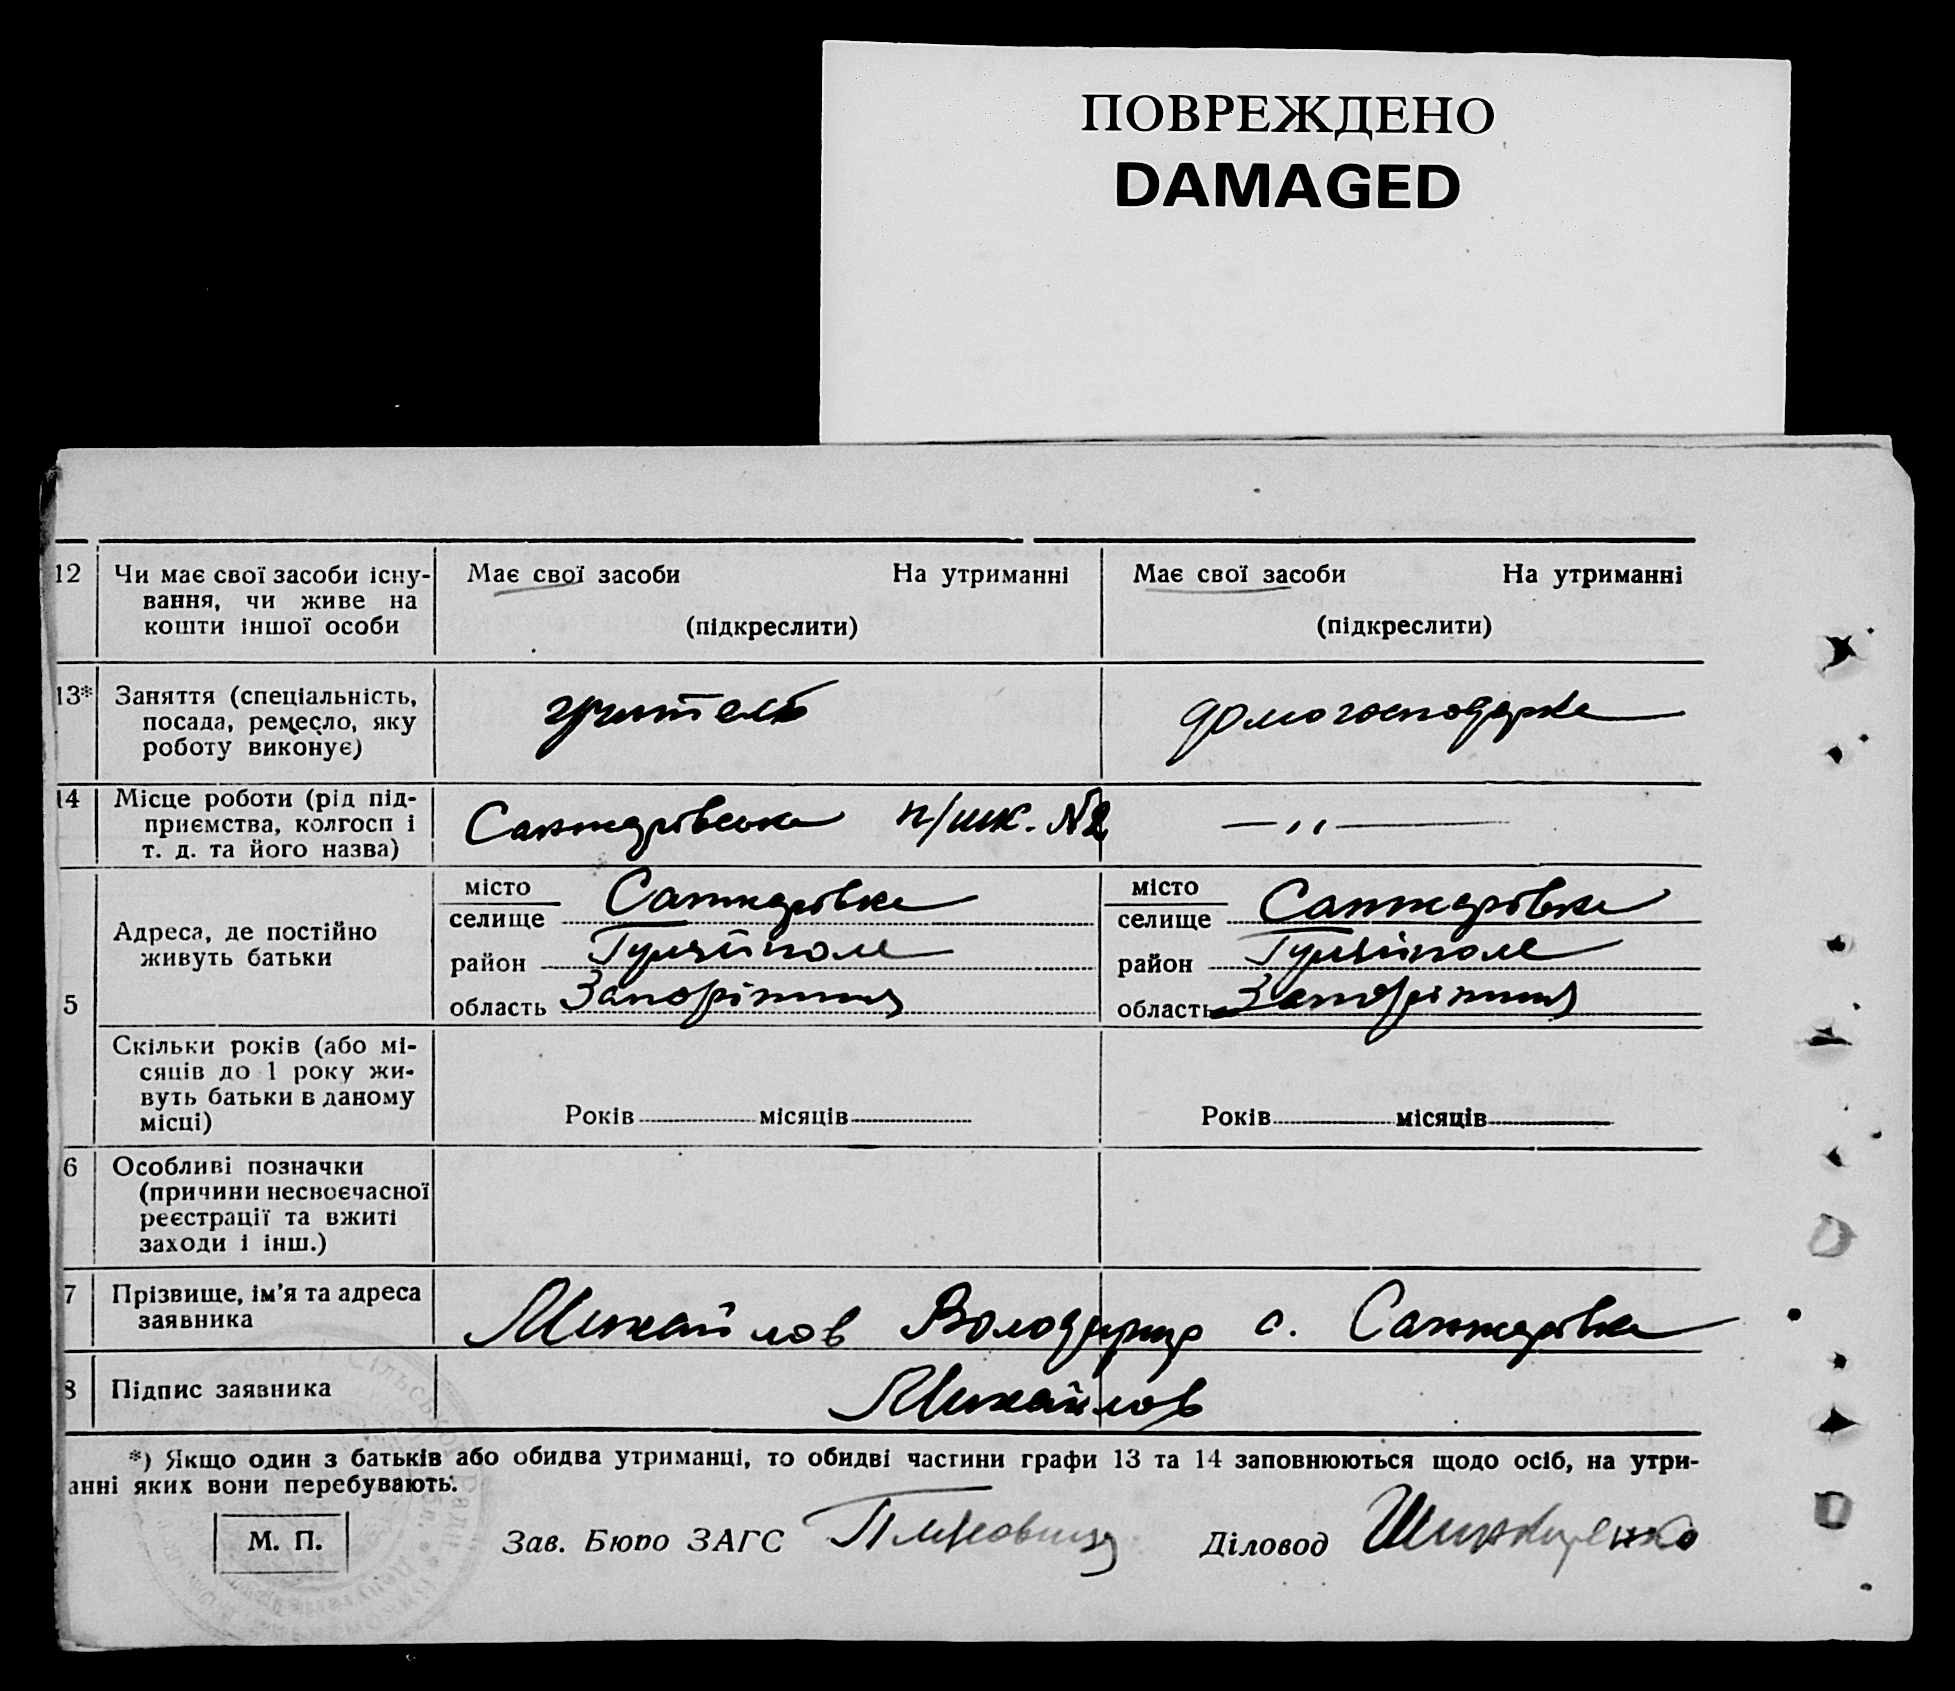 ПОВРЕЖДЕНО
DAMAGED
12 Чи має свої засоби існу-
вання, чи живе на
кошти іншої особи
Має свої засоби На утриманні
(підкреслити)
Має свої засоби На утриманні
(підкреслити)
13* Заняття (спеціальність,
посада, ремесло, яку
роботу виконує)
учитель
домогосподарка
14 Місце роботи (рід під-
приємства, колгосп і
т. д. та його назва)
Санжарівська п/шк. №2
— ,, —
5
Адреса, де постійно
живуть батьки
місто
селище Санжарівка
район Гуляйполе
область Запоріжжя
місто
селище Санжарівка
район Гуляйполе
область Запоріжжя
Скільки років (або мі-
сяців до 1 року жи-
вуть батьки в даному
місці)
Років місяців
Років місяців
6 Особливі позначки
(причини несвоєчасної
реєстрації та вжиті
заходи і інш.)
7 Прізвище, ім'я та адреса
заявника
Михайлов Володимир с. Санжарівка
8 Підпис заявника
Михайлов
*) Якщо один з батьків або обидва утриманці, то обидві частини графи 13 та 14 заповнюються щодо осіб, на утри-
анні яких вони перебувають.
М. П.
Зав. Бюро ЗАГС
Діловод